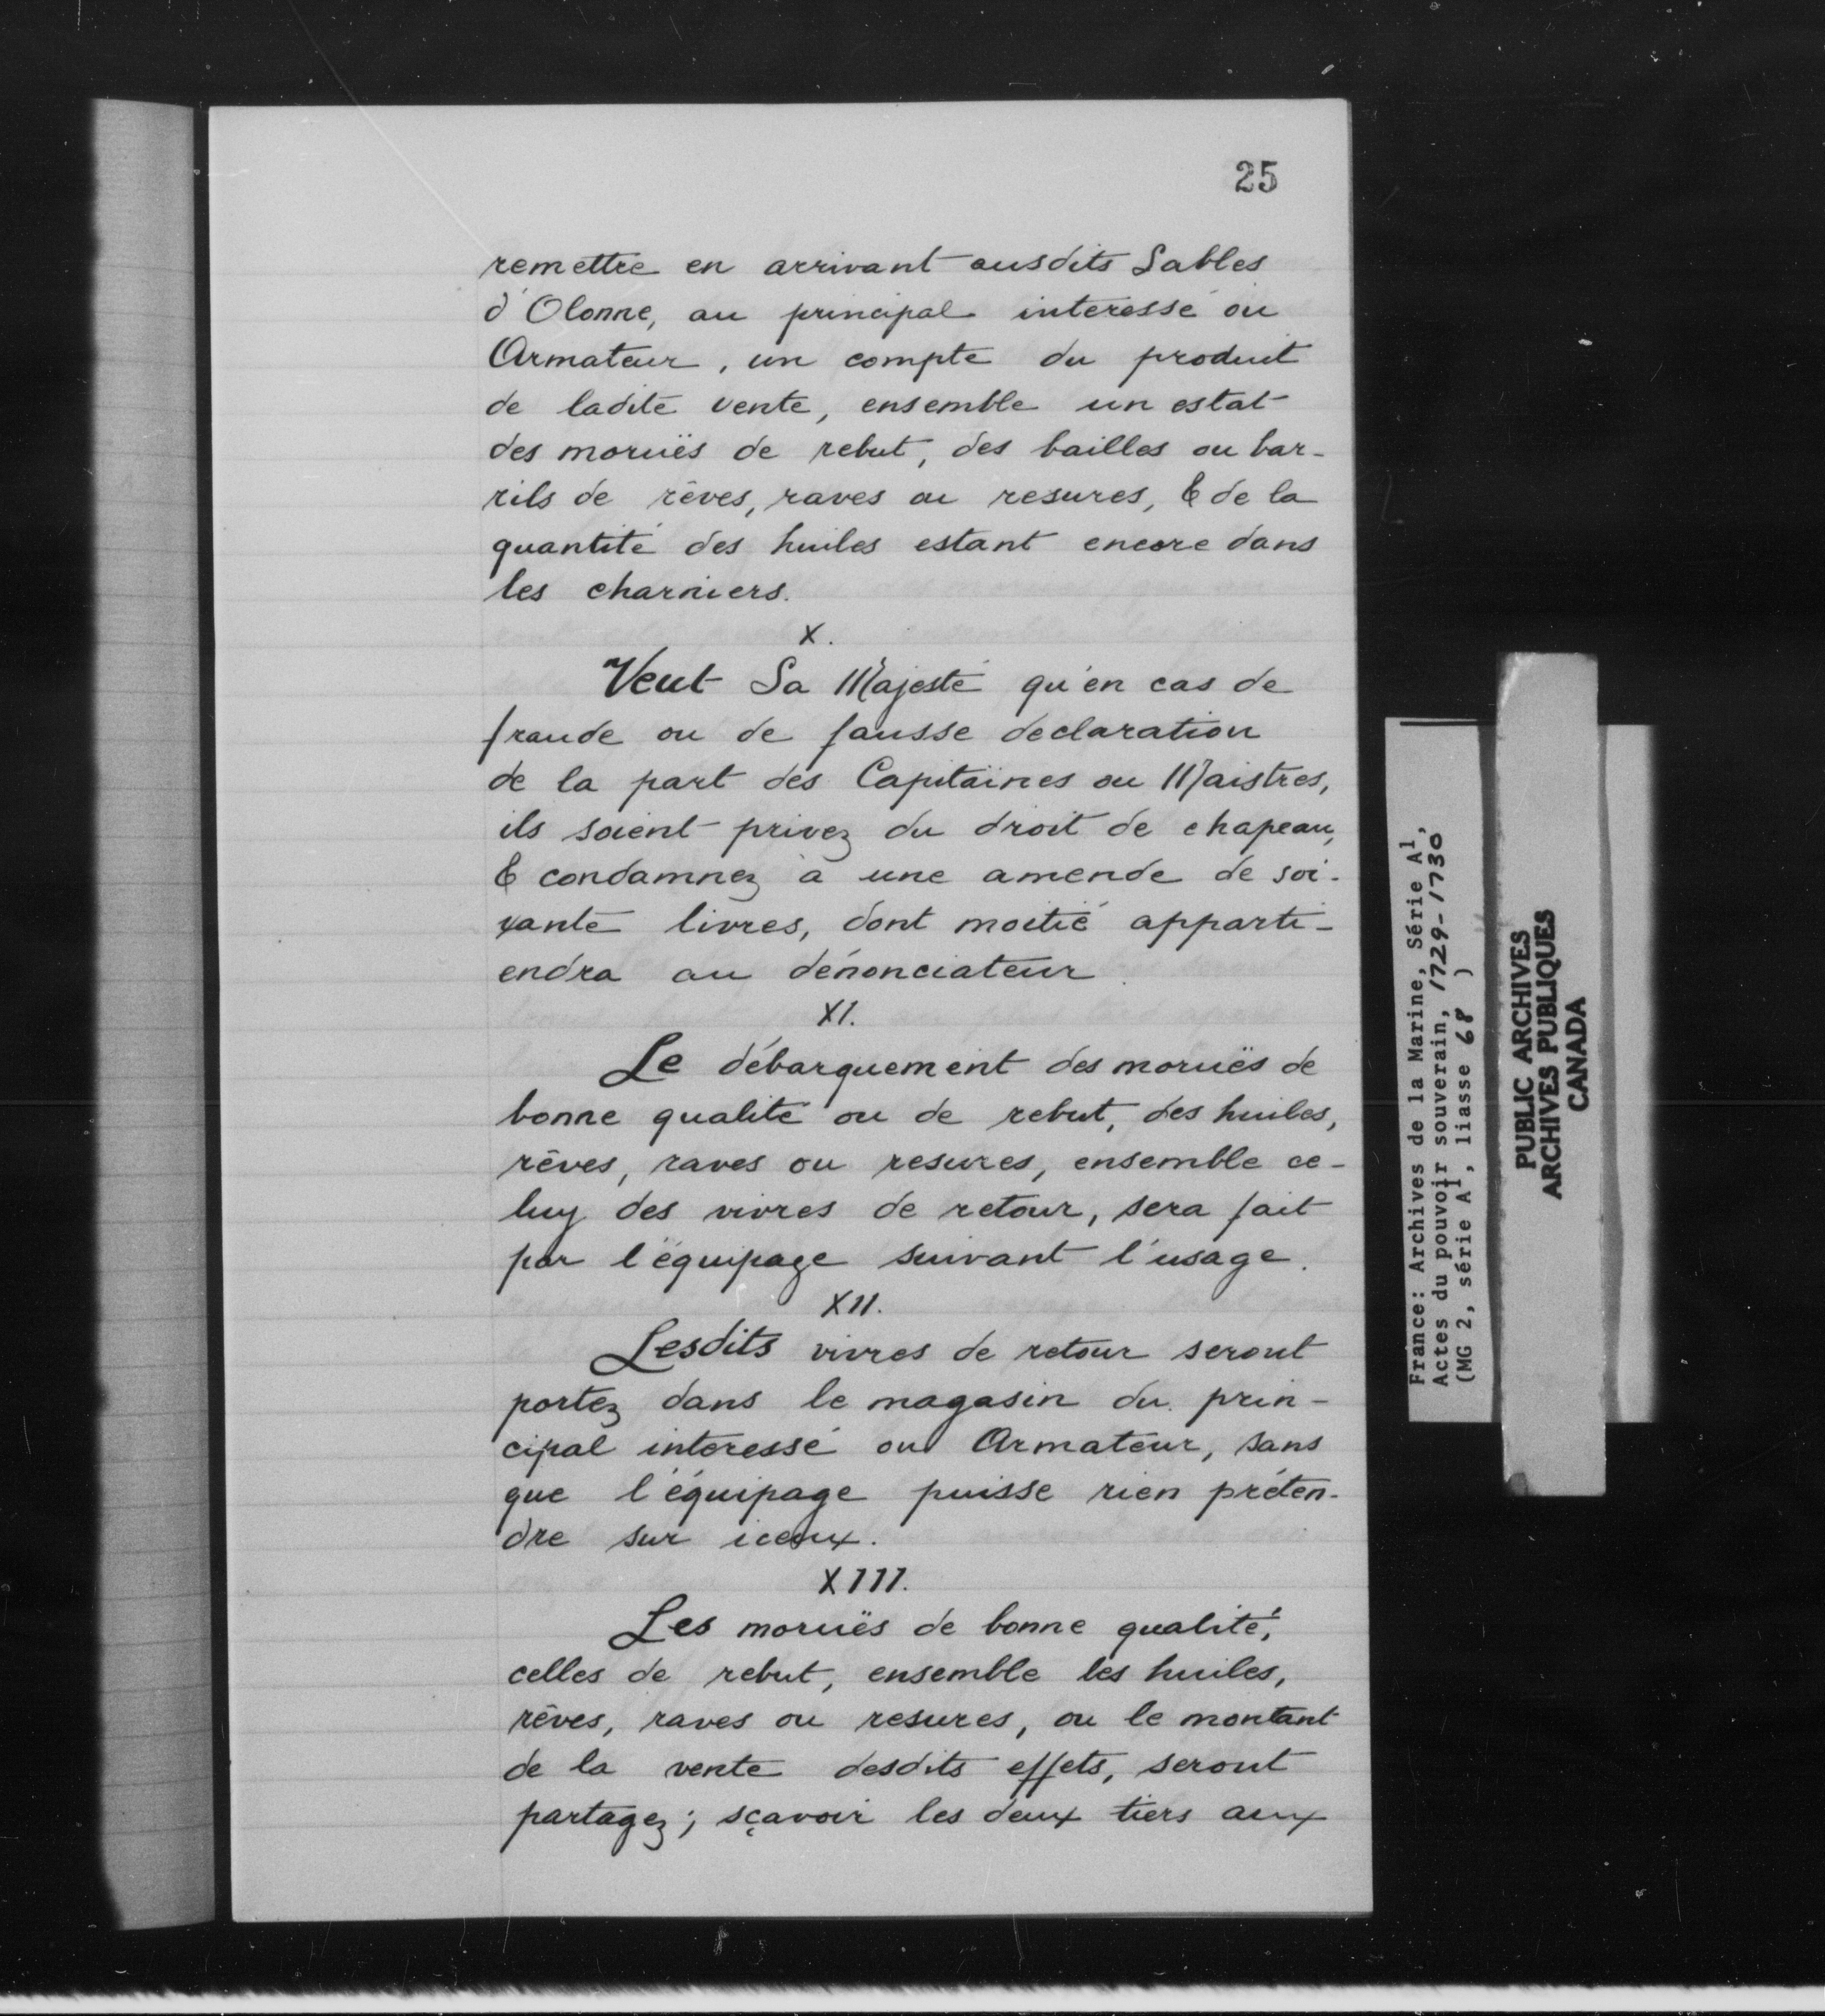 25
remettre en arrivant ausdits Sables
d'Olonne, au principal interessé ou
Armateur, un compte du produit
de ladite vente, ensemble un estat
des moruës de rebut, des bailles ou bar-
rils de rêves, raves ou resures, & de la
quantité des huiles estant encore dans
les charniers.
X.
Veut Sa Majesté qu'en cas de
fraude ou de fausse declaration
de la part des Capitaines ou Maistres,
ils soient privez du droit de chapeau,
& condamnez à une amende de soi-
xante livres, dont moitié apparti-
endra au dénonciateur.
XI.
Le débarquement des moruës de
bonne qualité ou de rebut, des huiles,
rêves, raves ou resures, ensemble ce-
luy des vivres de retour, sera fait
par l'équipage suivant l'usage.
XII.
Lesdits vivres de retour seront
portez dans le magasin du prin-
cipal interessé ou Armateur, sans
que l'équipage puisse rien préten-
dre sur iceux.
XIII.
Les moruës de bonne qualité,
celles de rebut, ensemble les huiles,
rêves, raves ou resures, ou le montant
de la vente desdits effets, seront
partagez; sçavoir les deux tiers aux
France: Archives de la Marine, Série A1,
Actes du pouvoir souverain, 1729-1730
(MG 2, série A1, liasse 68 )
PUBLIC ARCHIVES
ARCHIVES PUBLIQUES
CANADA